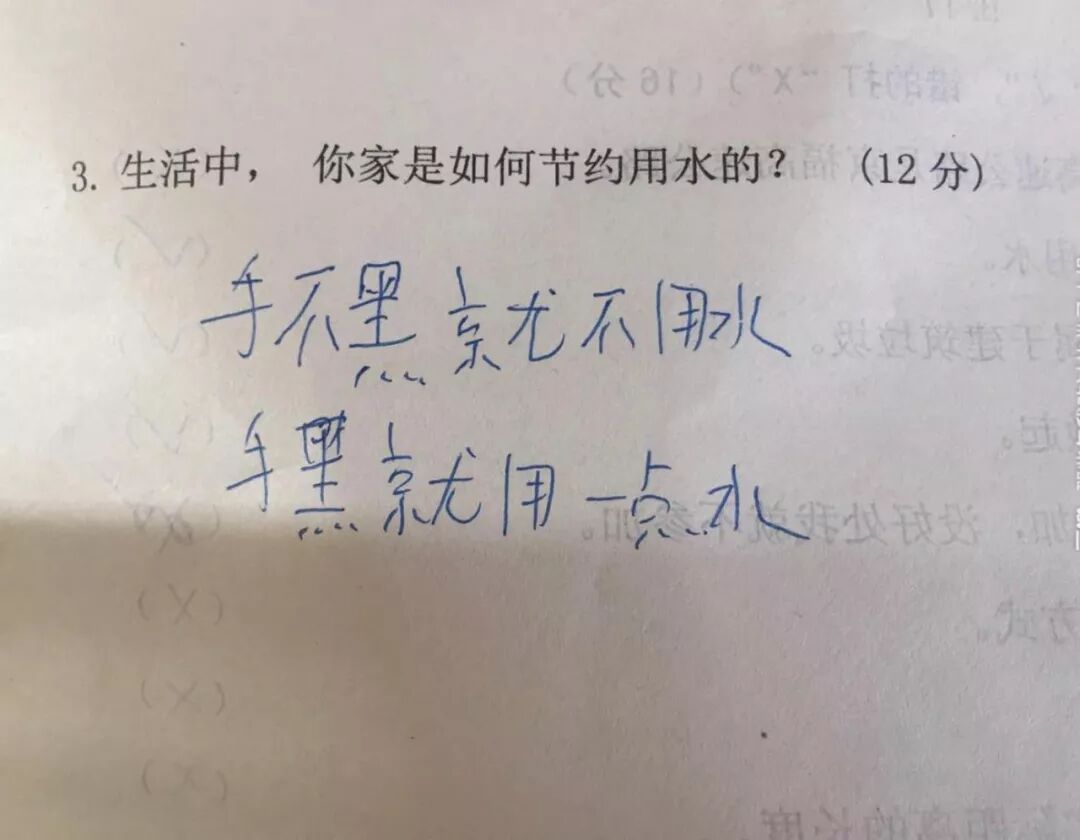 3. 生活中， 你家是如何节约用水的？ (12分)
手不黑就不用水
手黑就用一点水